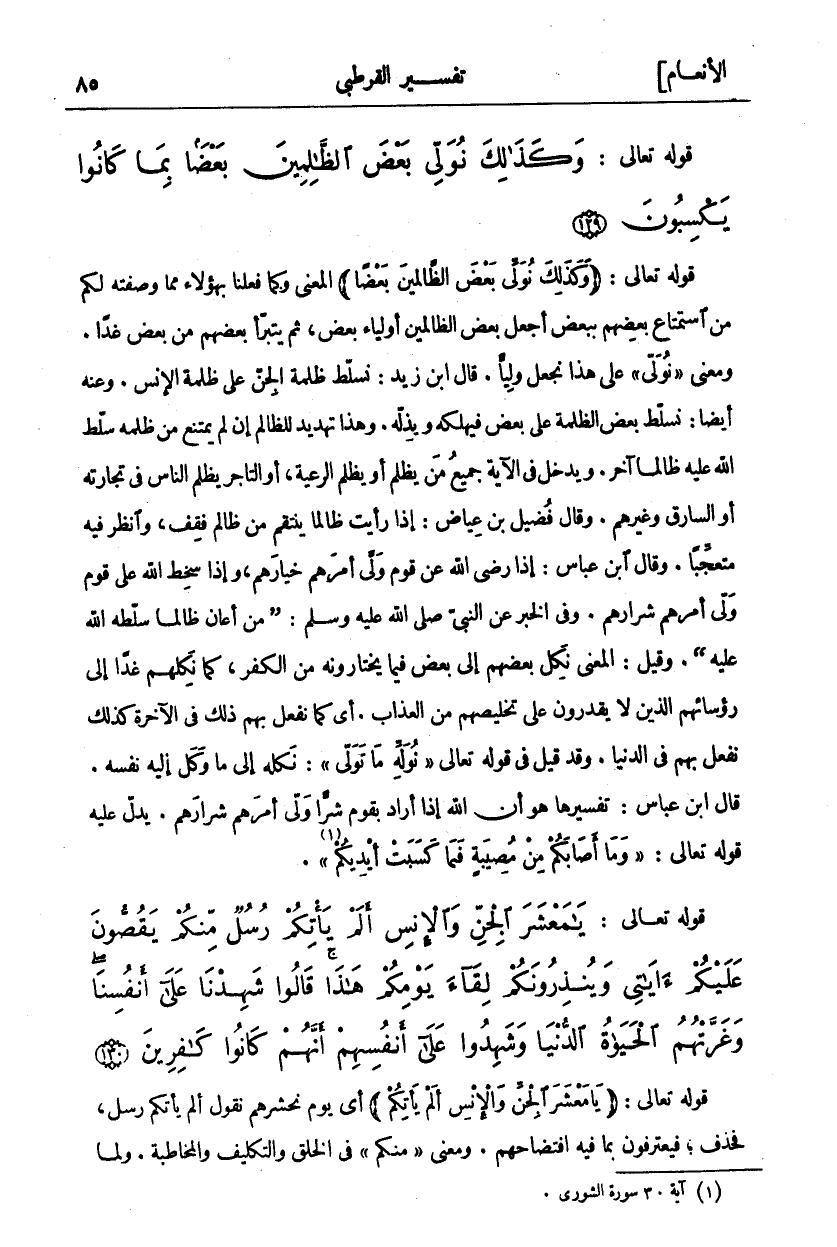 الأنعـام]
تفســير القرطبى
٨٥
قوله تعالى : وَكَذَٰلِكَ نُوَلِّى بَعْضَ ٱلظَّـٰلِمِينَ بَعْضَۢا بِمَا كَانُوا۟
يَكْسِبُونَ ١٢٩
قوله تعالى : ﴿وَكَذَلِكَ نُوَلِّى بَعْضَ الظَّالِمِينَ بَعْضًا﴾ المعنى وكما فعلنا بهؤلاء مما وصفته لكم
من ٱستمتاع بعضهم ببعض أجعل بعض الظالمين أولياء بعض، ثم يتبرّأ بعضهم من بعض غدًا .
ومعنى «نُوَلِّى» على هذا نجعل وليًّا . قال ابن زيد : نسلّط ظلمة الجنّ على ظلمة الإنس . وعنه
أيضا : نسلّط بعض الظلمة على بعض فيهلكه ويذلّه . وهذا تهديد للظالم إن لم يمتنع من ظلمه سلّط
الله عليه ظالمـا آخر . ويدخل فى الآية جميعُ مَن يظلم أو يظلم الرعية، أو التاجر يظلم الناس فى تجارته
أو السارق وغيرهم . وقال فُضيل بن عِياض : إذا رأيت ظالما ينتقم من ظالم فقِف، وٱنظر فيه
متعجِّبًا . وقال ٱبن عباس : إذا رضى الله عن قوم وَلَّى أمرَهم خيارَهم، وإذا سخِط الله على قوم
وَلّى أمرهم شرارهم . وفى الخبر عن النبىّ صلى الله عليه وسـلم : ”من أعان ظالمـا سلّطه الله
عليه“ . وقيل : المعنى نَكِل بعضهم إلى بعض فيما يختارونه من الكفر، كما نَكِلهـم غدًا إلى
رؤسائهم الذين لا يقدرون على تخليصهم من العذاب . أى كما نفعل بهم ذلك فى الآخرة كذلك
نفعل بهم فى الدنيا . وقد قيل فى قوله تعالى «نُوَلِّهِ مَا تَوَلَّى» : نَكِله إلى ما وَكَل إليه نفسه .
قال ابن عباس : تفسيرها هو أن الله إذا أراد بقوم شرًّا وَلّى أمرَهم شرارَهم . يدلّ عليه
قوله تعالى : «وَمَا أَصَابَكُمْ مِنْ مُصِيبَةٍ فَبِمَا كَسَبَتْ أَيْدِيكُمْ(١)» .
قوله تعـالى : يَـٰمَعْشَرَ ٱلْجِنِّ وَٱلْإِنسِ أَلَمْ يَأْتِكُمْ رُسُلٌ مِّنكُمْ يَقُصُّونَ
عَلَيْكُمْ ءَايَـٰتِى وَيُنذِرُونَكُمْ لِقَآءَ يَوْمِكُمْ هَـٰذَا ۚ قَالُوا۟ شَهِدْنَا عَلَىٰٓ أَنفُسِنَا ۖ
وَغَرَّتْهُمُ ٱلْحَيَوٰةُ ٱلدُّنْيَا وَشَهِدُوا۟ عَلَىٰٓ أَنفُسِهِمْ أَنَّهُمْ كَانُوا۟ كَـٰفِرِينَ ١٣٠
قوله تعالى : ﴿يَامَعْشَرَ ٱلْجِنِّ وَالْإِنْسِ أَلَمْ يَأْتِكُمْ﴾ أى يوم نحشرهم نقول ألم يأتكم رسل،
فحذف ؛ فيعترفون بما فيه افتضاحهم . ومعنى «منكم» فى الخلق والتكليف والمخاطبة . ولمـا
(١) آية ٣٠ سورة الشورى .